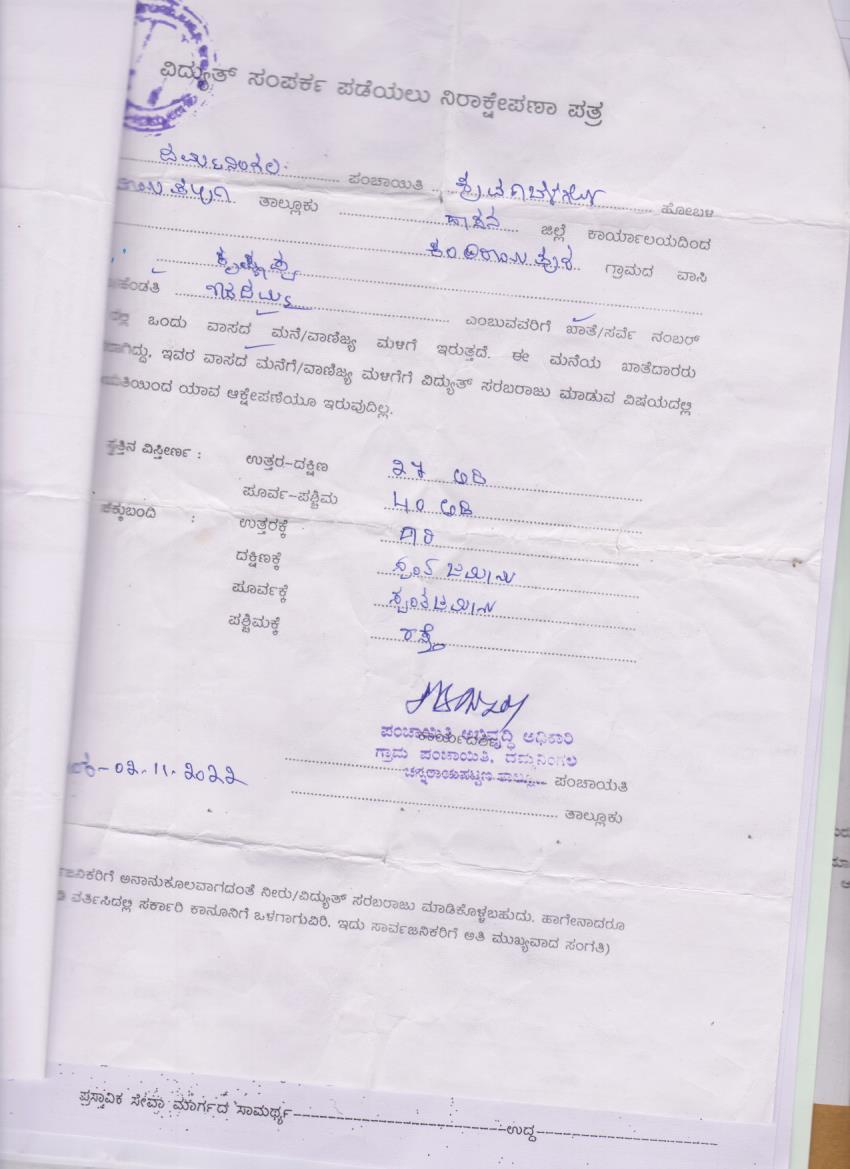 ವಿದ್ಯುತ್ ಸಂಪರ್ಕ ಪಡೆಯಲು ನಿರಾಕ್ಷೇಪಣಾ ಪತ್ರ
ಪಂಚಾಯಿತಿ ಹೋಬಳಿ
ತಾಲ್ಲೂಕು ಹಾಸನ ಜಿಲ್ಲೆ ಕಾರ್ಯಾಲಯದಿಂದ
ಗ್ರಾಮದ ವಾಸಿ
ಎಂಬುವವರಿಗೆ ಖಾತೆ/ಸರ್ವೆ ನಂಬರ್
ಒಂದು ವಾಸದ ಮನೆ/ವಾಣಿಜ್ಯ ಮಳಗೆ ಇರುತ್ತದೆ. ಈ ಮನೆಯ ಖಾತೆದಾರರು
ಇವರ ವಾಸದ ಮನೆಗೆ/ವಾಣಿಜ್ಯ ಮಳಗೆಗೆ ವಿದ್ಯುತ್ ಸರಬರಾಜು ಮಾಡುವ ವಿಷಯದಲ್ಲಿ
ಯಾವ ಆಕ್ಷೇಪಣೆಯೂ ಇರುವುದಿಲ್ಲ.
ಸ್ವತ್ತಿನ ವಿಸ್ತೀರ್ಣ : ಉತ್ತರ-ದಕ್ಷಿಣ ೨೭ ಅಡಿ
ಪೂರ್ವ-ಪಶ್ಚಿಮ ೪೦ ಅಡಿ
ಚೆಕ್ಕುಬಂದಿ : ಉತ್ತರಕ್ಕೆ ದಾರಿ
ದಕ್ಷಿಣಕ್ಕೆ ಸ್ವಂತ ಜಮೀನು
ಪೂರ್ವಕ್ಕೆ ಸ್ವಂತ ಜಮೀನು
ಪಶ್ಚಿಮಕ್ಕೆ ರಸ್ತೆ
ಪಂಚಾಯಿತಿ ಅಭಿವೃದ್ಧಿ ಅಧಿಕಾರಿ
ಗ್ರಾಮ ಪಂಚಾಯಿತಿ, ದಮ್ಮನಿಂಗಲ
ಚನ್ನರಾಯಪಟ್ಟಣ ತಾಲ್ಲೂಕು ಪಂಚಾಯತಿ
-೦೩.11.೨೦೨೨
ತಾಲ್ಲೂಕು
ಅನಾನುಕೂಲವಾಗದಂತೆ ನೀರು/ವಿದ್ಯುತ್ ಸರಬರಾಜು ಮಾಡಿಕೊಳ್ಳಬಹುದು. ಹಾಗೇನಾದರೂ
ವರ್ತಿಸಿದಲ್ಲಿ ಸರ್ಕಾರಿ ಕಾನೂನಿಗೆ ಒಳಗಾಗುವಿರಿ. ಇದು ಸಾರ್ವಜನಿಕರಿಗೆ ಅತಿ ಮುಖ್ಯವಾದ ಸಂಗತಿ)
ಪ್ರಸ್ತಾವಿಕ ಸೇವಾ ಮಾರ್ಗದ ಸಾಮರ್ಥ್ಯ ಉದ್ದ